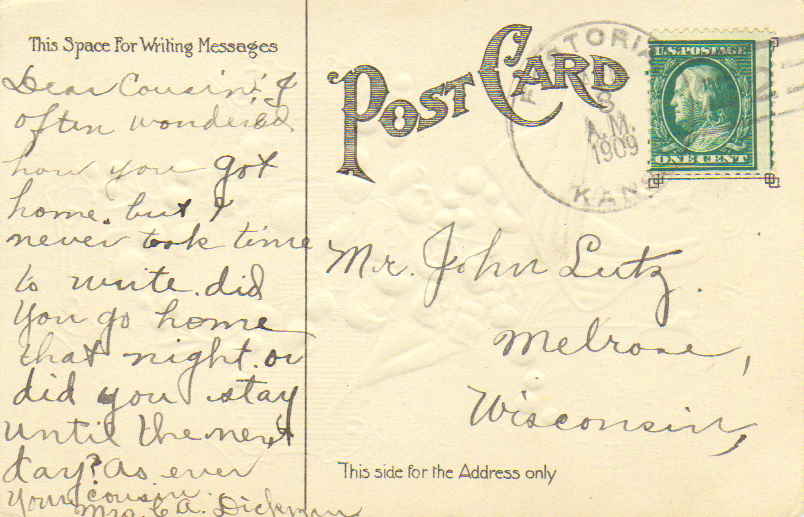 This Space For Writing Messages
POST CARD
TORIA
8
A.M.
1909
KANS
U.S. POSTAGE
ONE CENT
Dear Cousin; I
often wondered
how you got
home. but I
never took time
to write. did
you go home
that night. or
did you stay
until the next
day? as ever
your cousin.
Mrs. C.A. Dickman
Mr. John Lutz.
Melrose,
Wisconsin,
This side for the Address only